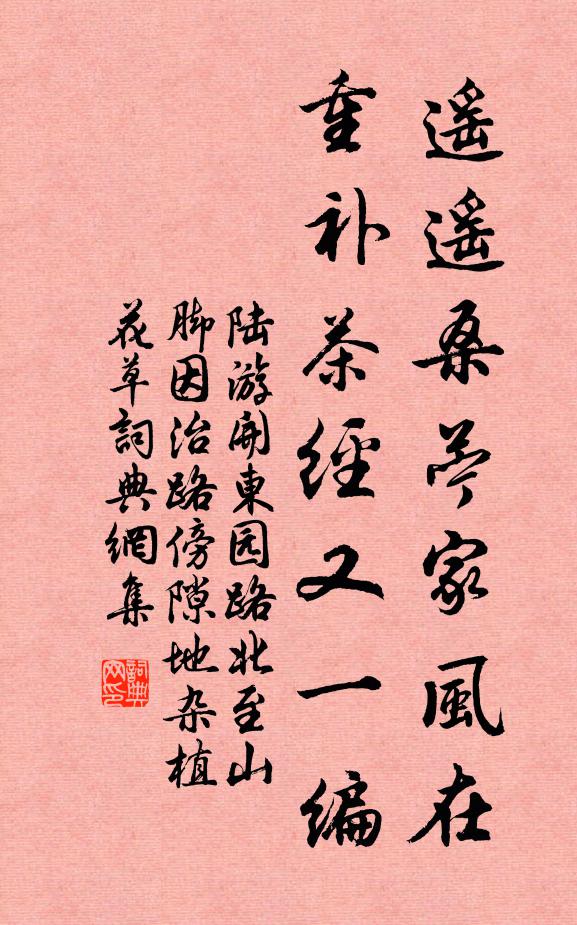 遥遥桑苎家風在
重补茶經又一编
陆游開東园路北至山
脚因治路傍隙地杂植
花草詞典網集
詞典网印